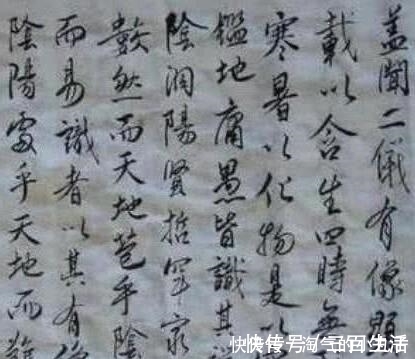 盖聞二儀有像
載以含生四時無
寒暑以化物是以
鑑地庸愚皆識其
陰洞陽賢哲罕窮
數然而天地苞乎陰
而易識者以其有
陰陽處乎天地而